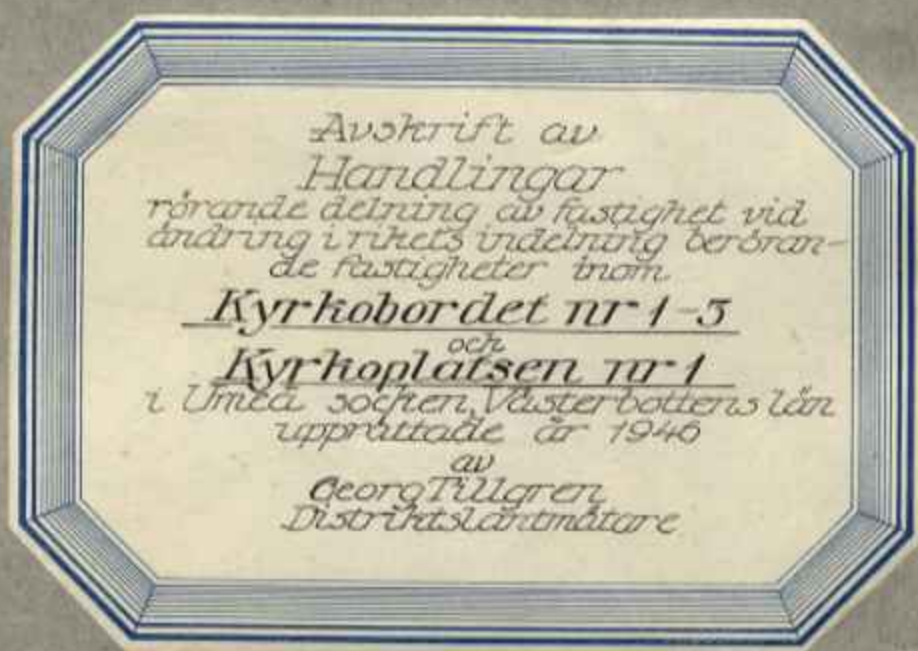 Avskrift av
Handlingar
rörande delning av fastighet vid
ändring i rikets indelning beröran-
de fastigheter inom
Kyrkobordet nr 1-3
och
Kyrkoplatsen nr 1
i Umeå socken, Västerbottens län
upprättade år 1946
av
Georg Tillgren
Distriktslantmätare